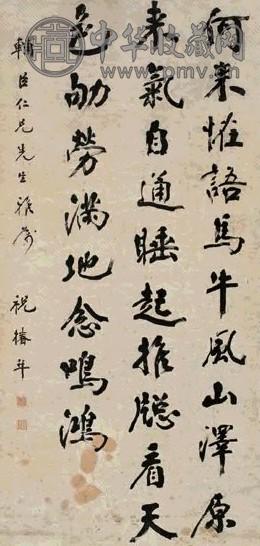 何來怪語馬牛風山澤原
來氣自通睡起推牕看天
色劬勞滿地念鳴鴻
輔臣仁兄先生雅屬
祝椿年
中华收藏网
www.pmv.cn